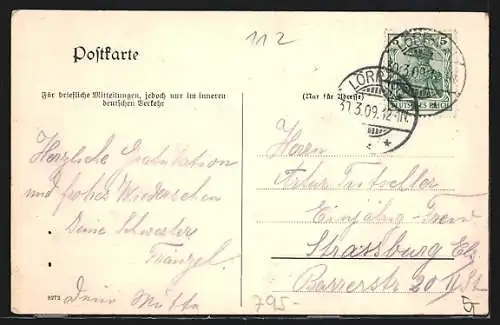 112
Postkarte
Für briefliche Mitteilungen, jedoch nur im inneren
deutschen Verkehr
(Nur für Adresse)
Herzliche Gratulation
und frohes Wiedersehen
Deine Schwester
Fränzel.
Deine Mutter
8273
795-
DEUTSCHES REICH
LÖRRACH
30.3.09.12-1N.
Herrn
Artur Tritscheller
Einjährig-Freiw
Strassburg Els.
Barrerstr 20 II St